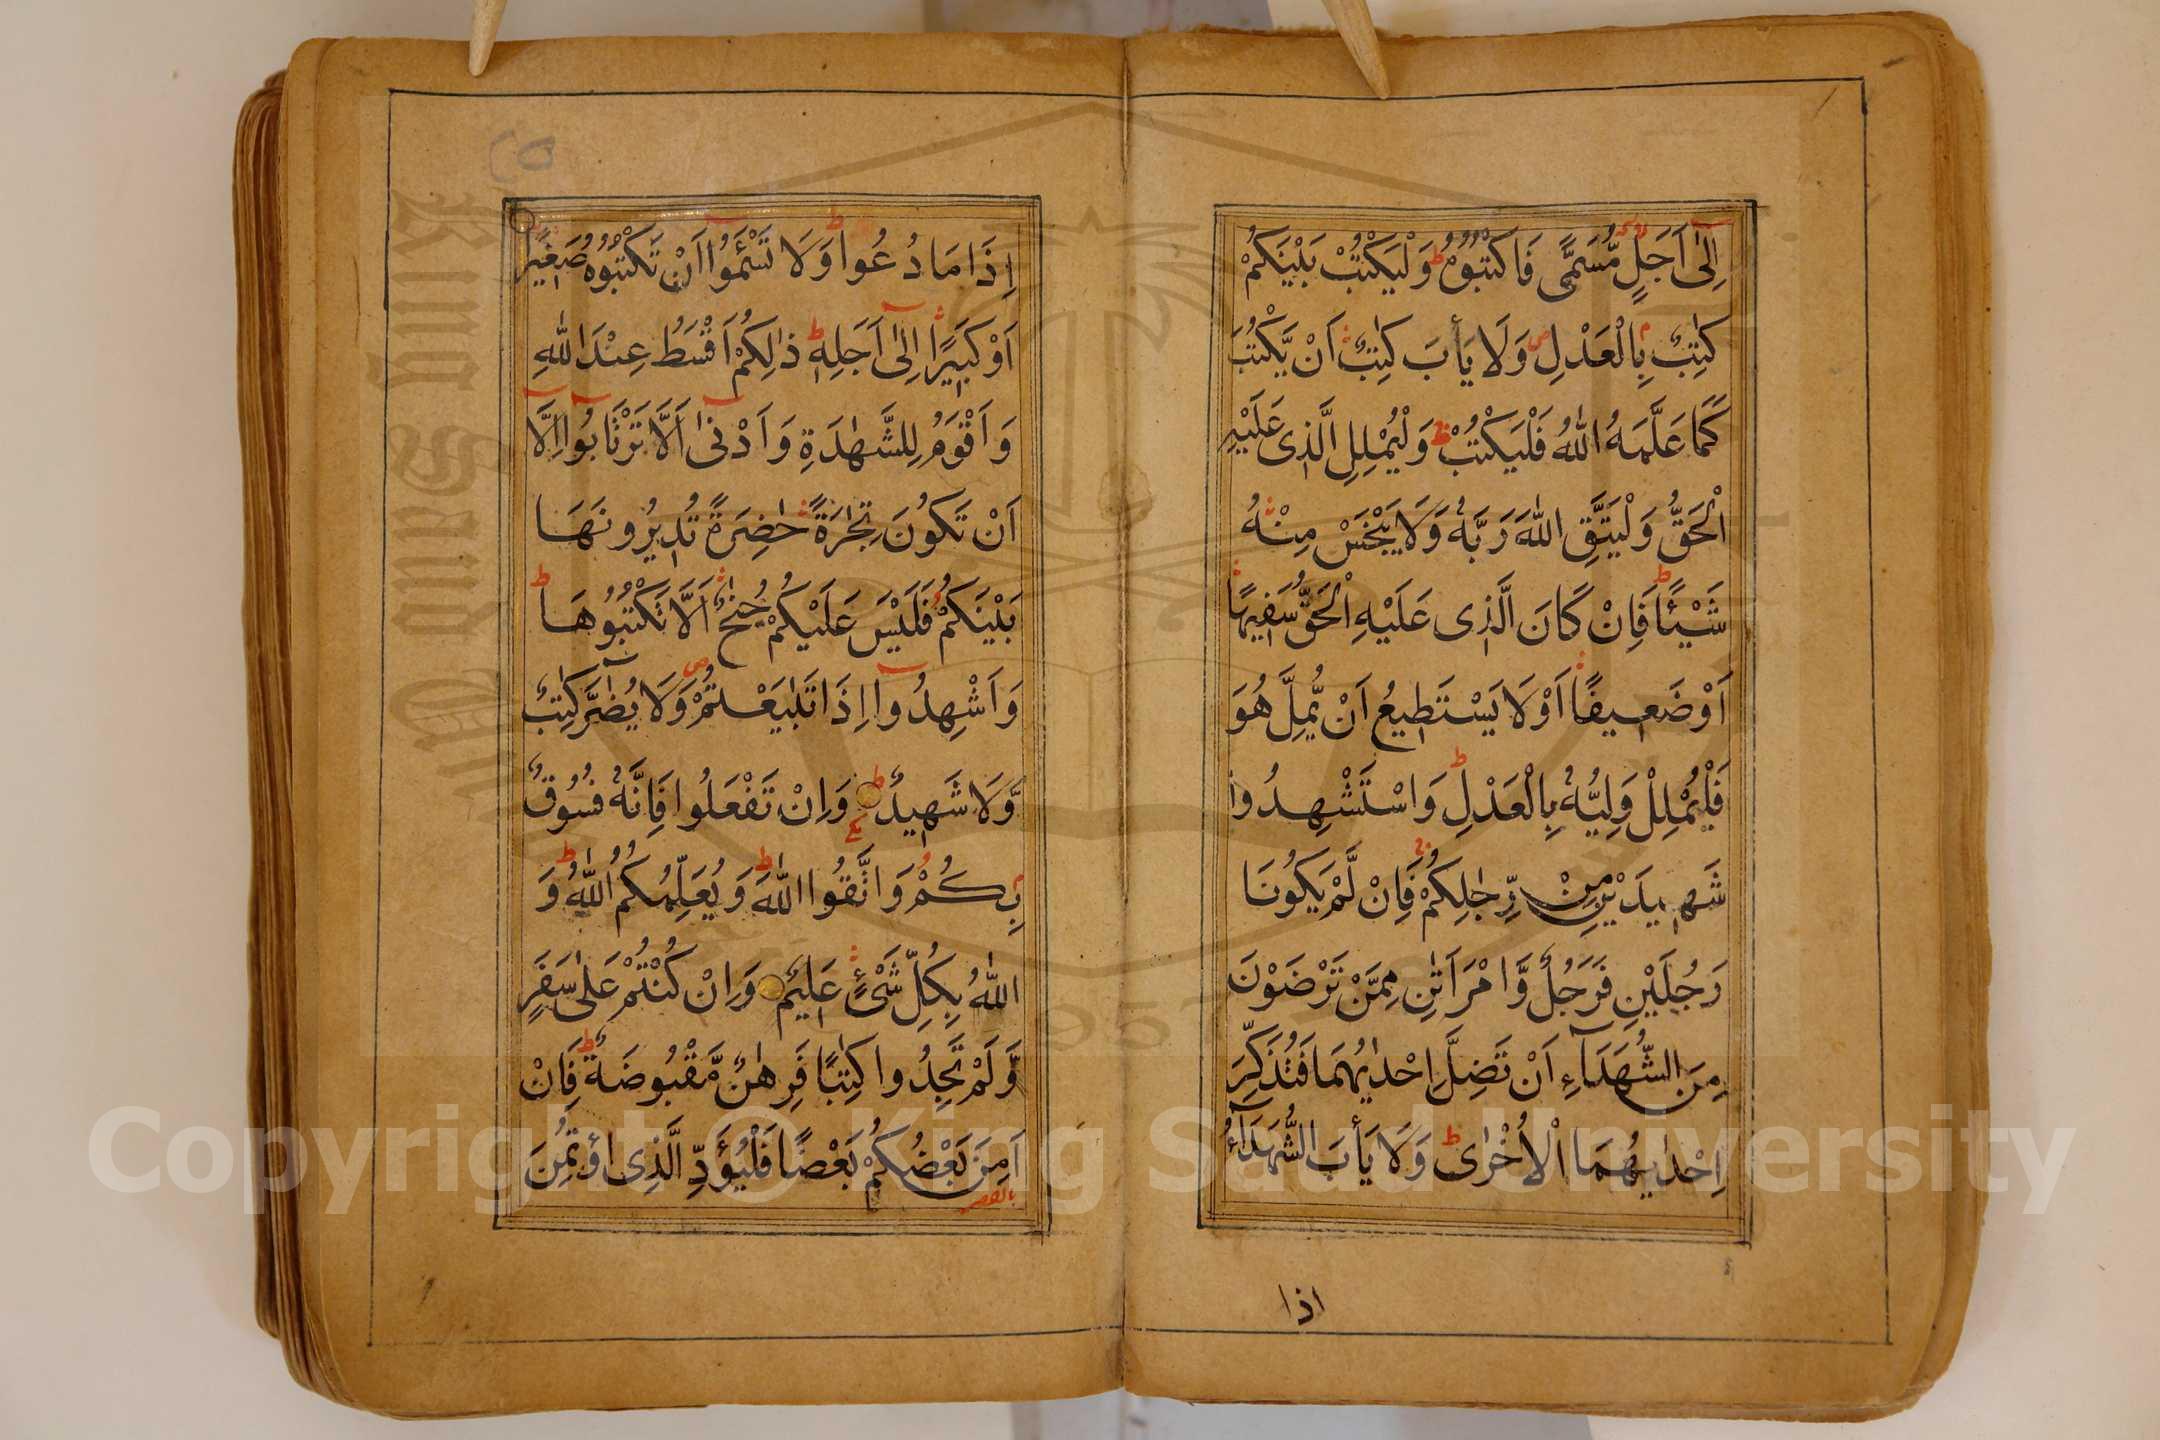 اِلٰٓى اَجَلٍ مُّسَمًّى فَاكْتُبُوْهُ ط وَلْيَكْتُبْ بَيْنَكُمْ
كَاتِبٌ بِالْعَدْلِ ص وَلَا يَأْبَ كَاتِبٌ اَنْ يَّكْتُبَ
كَمَا عَلَّمَهُ اللّٰهُ فَلْيَكْتُبْ ج وَلْيُمْلِلِ الَّذِى عَلَيْهِ
الْحَقُّ وَلْيَتَّقِ اللّٰهَ رَبَّهٗ وَلَا يَبْخَسْ مِنْهُ
شَيْـًٔا ط فَاِنْ كَانَ الَّذِى عَلَيْهِ الْحَقُّ سَفِيْهًا
اَوْ ضَعِيفًا اَوْ لَا يَسْتَطِيعُ اَنْ يُّمِلَّ هُوَ
فَلْيُمْلِلْ وَلِيُّهٗ بِالْعَدْلِ ط وَاسْتَشْهِدُوا
شَهِيدَيْنِ مِنْ رِّجَالِكُمْ ج فَاِنْ لَّمْ يَكُونَا
رَجُلَيْنِ فَرَجُلٌ وَّامْرَاَتٰنِ مِمَّنْ تَرْضَوْنَ
مِنَ الشُّهَدَآءِ اَنْ تَضِلَّ اِحْدٰيهُمَا فَتُذَكِّرَ
اِحْدٰيهُمَا الْاُخْرٰى ط وَلَا يَأْبَ الشُّهَدَآءُ
اذا
اِذَا مَا دُعُوا ط وَلَا تَسْـَٔمُوٓا اَنْ تَكْتُبُوْهُ صَغِيْرًا
اَوْ كَبِيْرًا اِلٰٓى اَجَلِهٖ ط ذٰلِكُمْ اَقْسَطُ عِنْدَ اللّٰهِ
وَاَقْوَمُ لِلشَّهٰدَةِ وَاَدْنٰٓى اَلَّا تَرْتَابُوٓا اِلَّآ
اَنْ تَكُوْنَ تِجٰرَةً حٰضِرَةً تُدِيْرُونَهَا
بَيْنَكُمْ فَلَيْسَ عَلَيْكُمْ جُنٰحٌ اَلَّا تَكْتُبُوْهَا ط
وَاَشْهِدُوٓا اِذَا تَبَايَعْتُمْ ص وَلَا يُضَآرَّ كَاتِبٌ
وَّلَا شَهِيدٌ ط وَاِنْ تَفْعَلُوا فَاِنَّهٗ فُسُوقٌ
بِكُمْ وَاتَّقُوا اللّٰهَ ط وَيُعَلِّمُكُمُ اللّٰهُ ط وَ
اللّٰهُ بِكُلِّ شَىْءٍ عَلِيْمٌ وَاِنْ كُنْتُمْ عَلٰى سَفَرٍ
وَّلَمْ تَجِدُوا كَاتِبًا فَرِهٰنٌ مَّقْبُوضَةٌ ط فَاِنْ
اَمِنَ بَعْضُكُمْ بَعْضًا فَلْيُؤَدِّ الَّذِى اؤْتُمِنَ
بالقصر
King Saud University
1957
Copyright © King Saud University